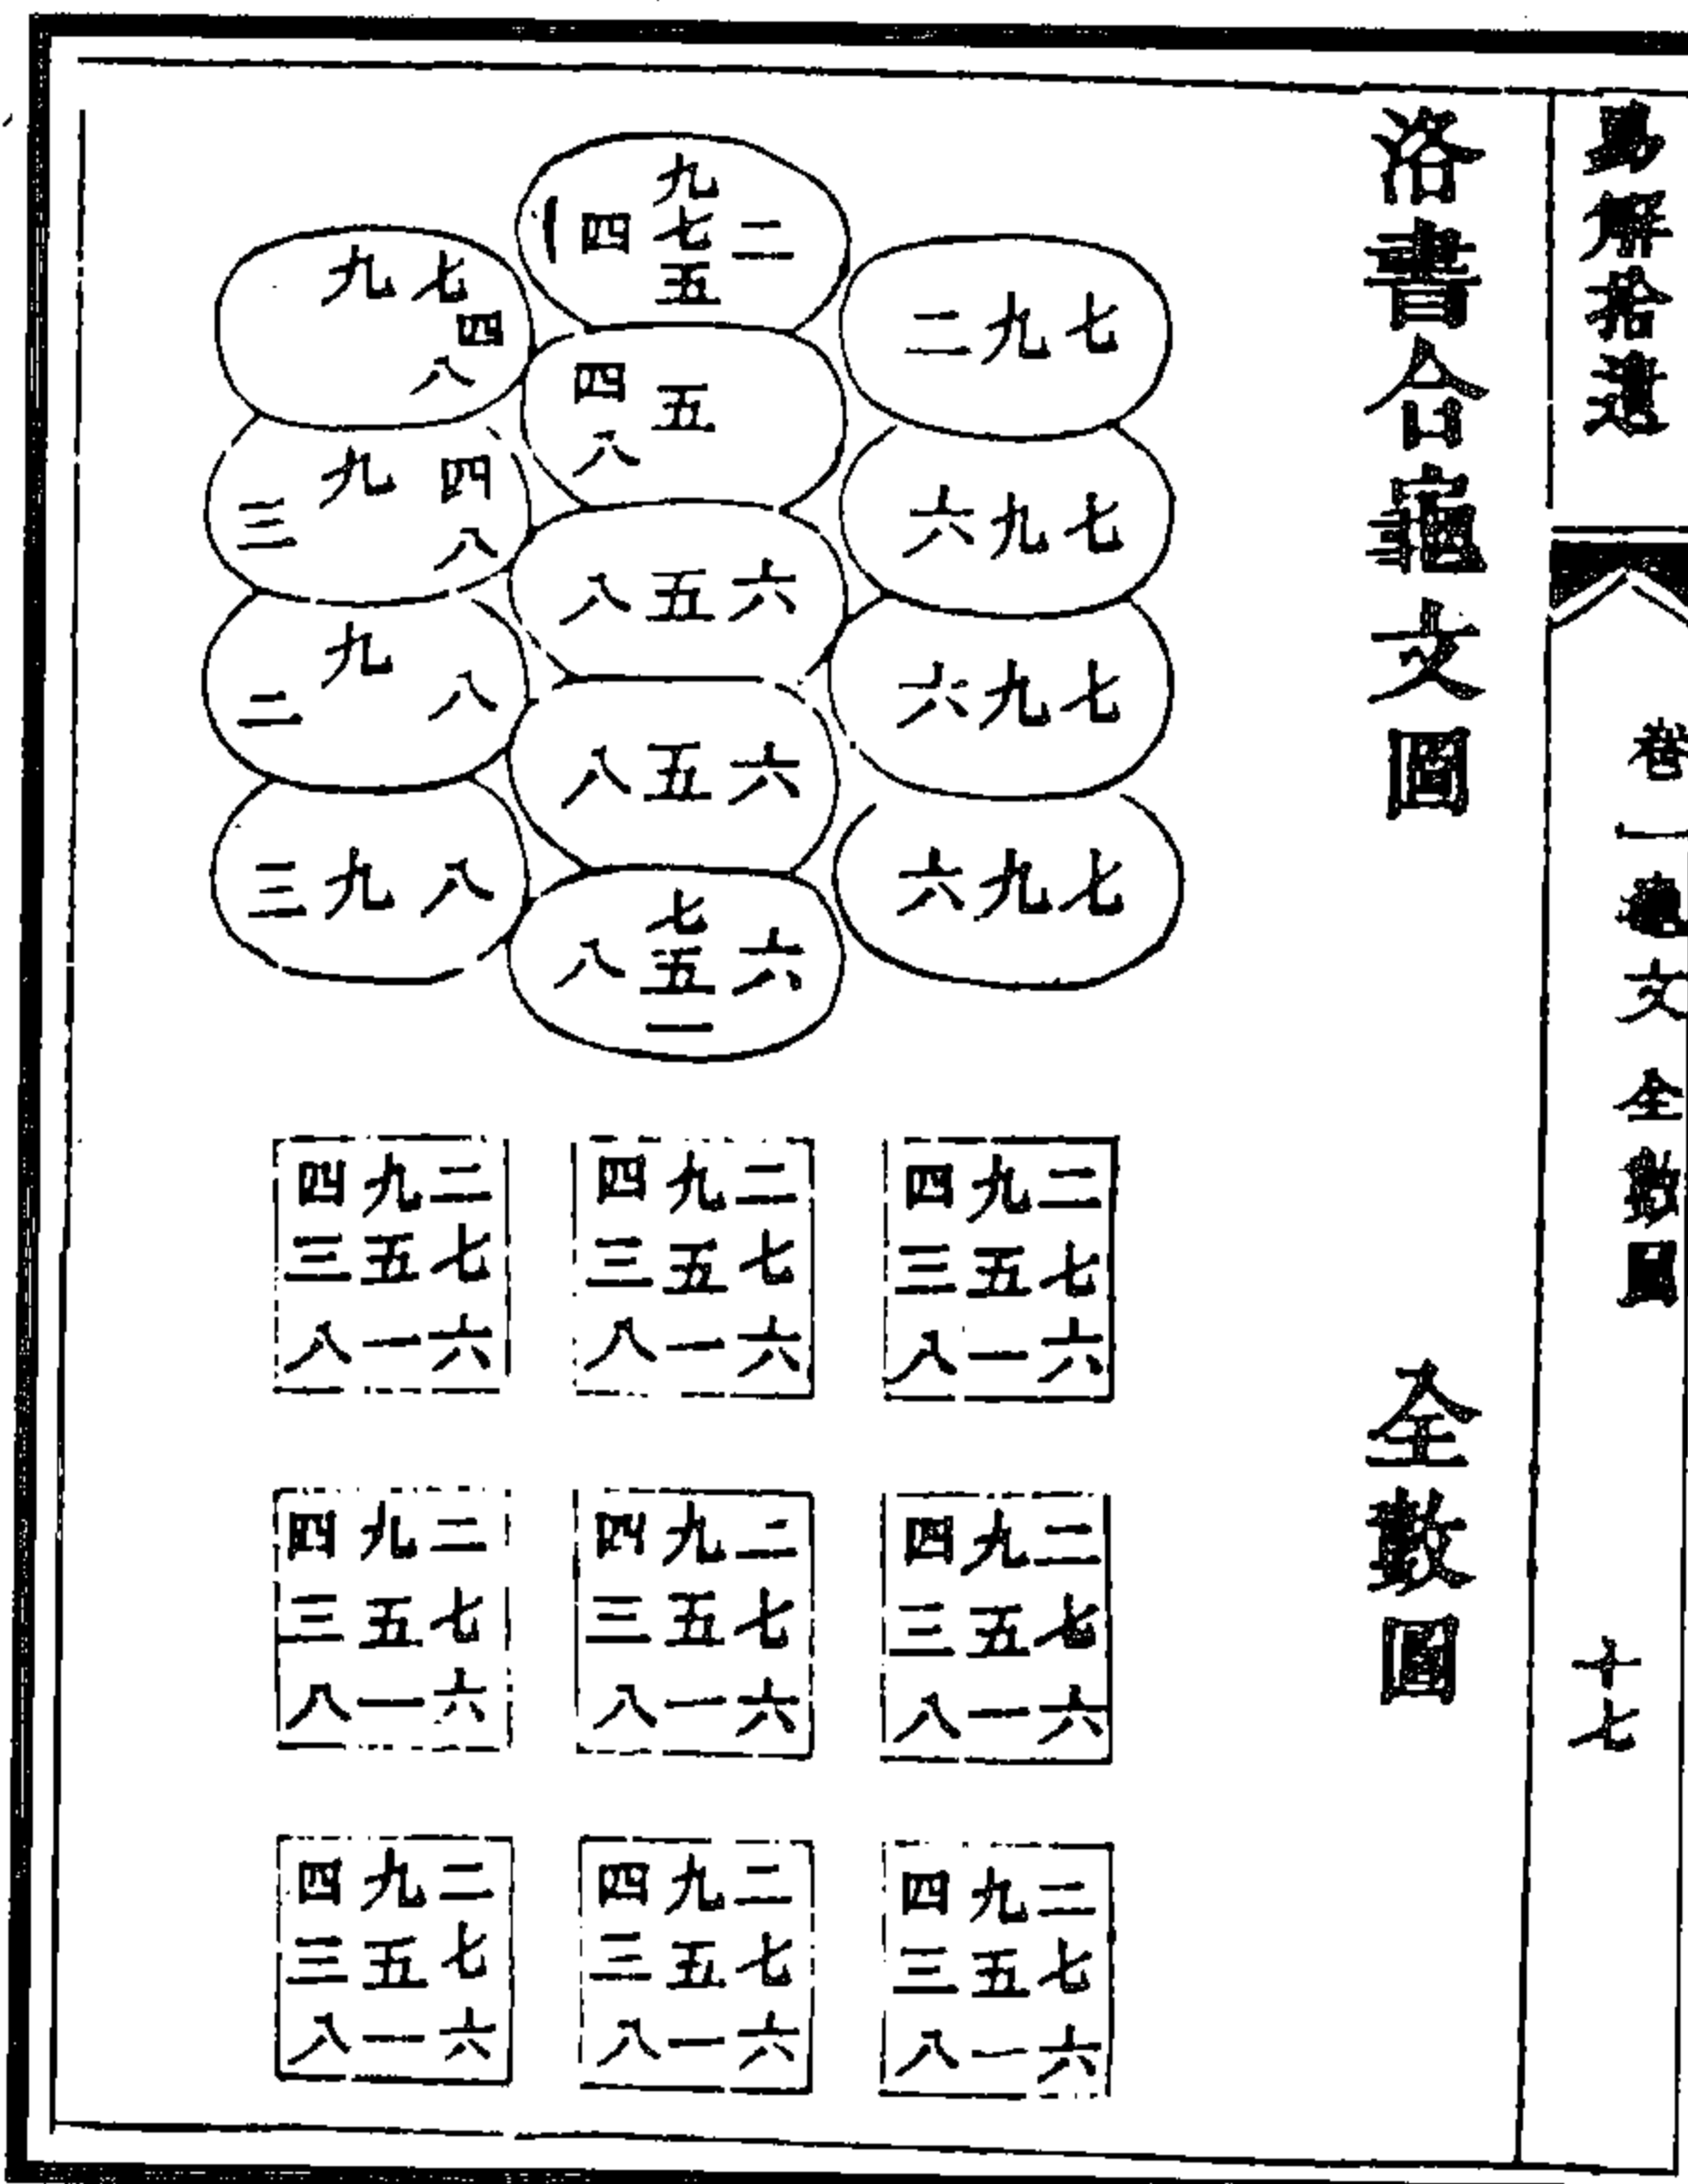 易解拾遺
卷一 龜文全數圖
十七
洛書合龜文圖
全數圖
二九七
六九七
六九七
六九七
九
四七二
五
四五
八
八五六
八五六
七
八五六
一
九七
四
八
九四
三八
九
二八
三九八
四九二
三五七
八一六
四九二
三五七
八一六
四九二
三五七
八一六
四九二
三五七
八一六
四九二
三五七
八一六
四九二
三五七
八一六
四九二
三五七
八一六
四九二
三五七
八一六
四九二
三五七
八一六